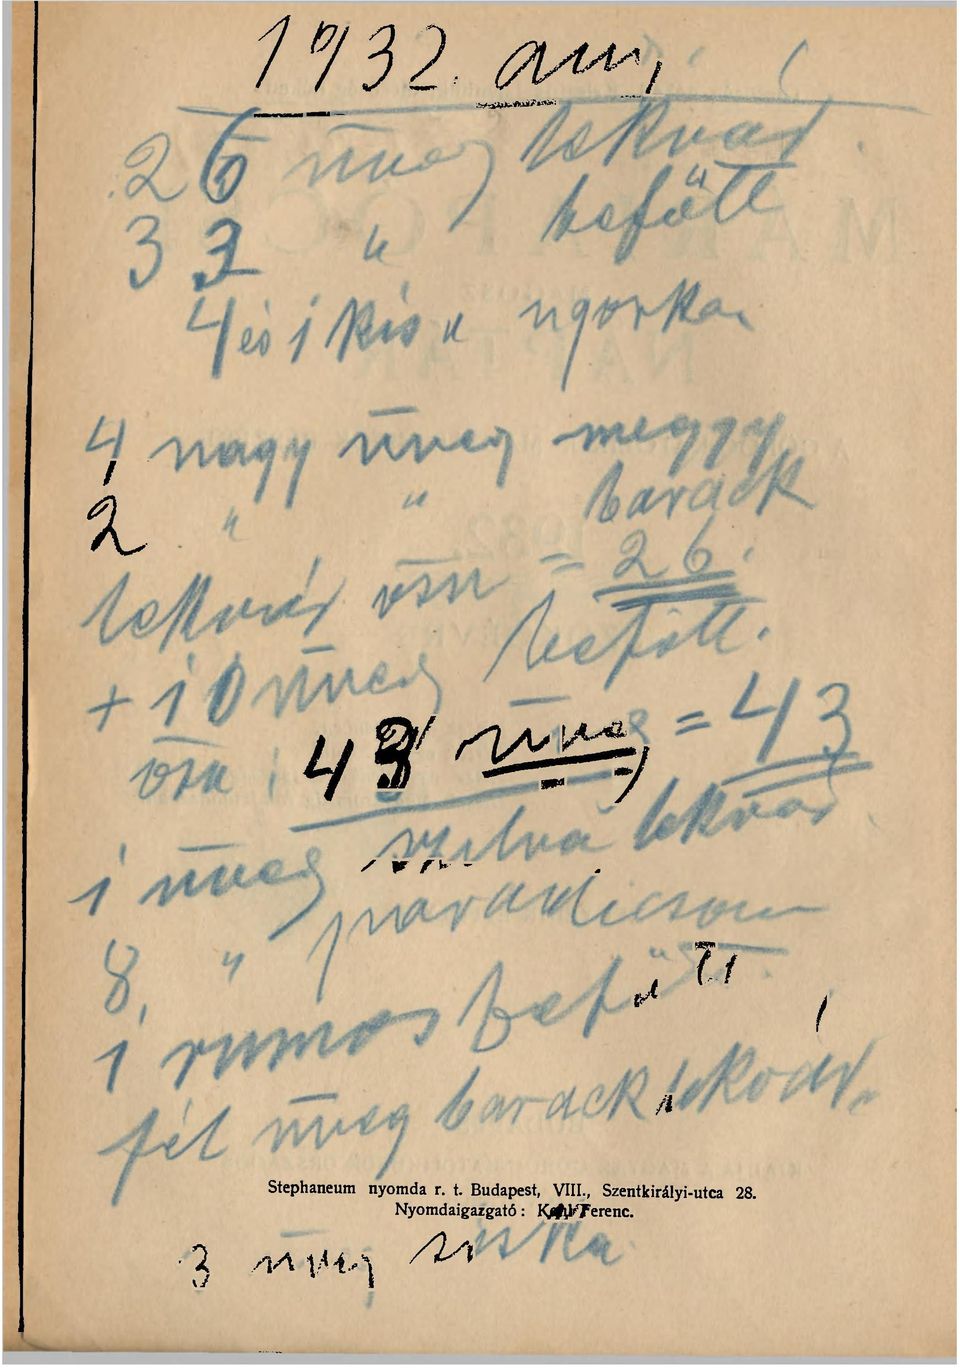 1932. am,
26 üveg lekvár.
33 " befőtt
4 és 1 kis " ugorka
4 nagy üveg meggy
2 " " barack
lekvár össz = 26.
+ 10 üveg befőtt.
össz: 43 üveg = 43
1 üveg szilva lekvár.
8. " paradicsom
1 rumos befőtt.
fél üveg barack lekvár.
Stephaneum nyomda r. t. Budapest, VIII., Szentkirályi-utca 28.
Nyomdaigazgató: Ferenc.
3 üveg sóska